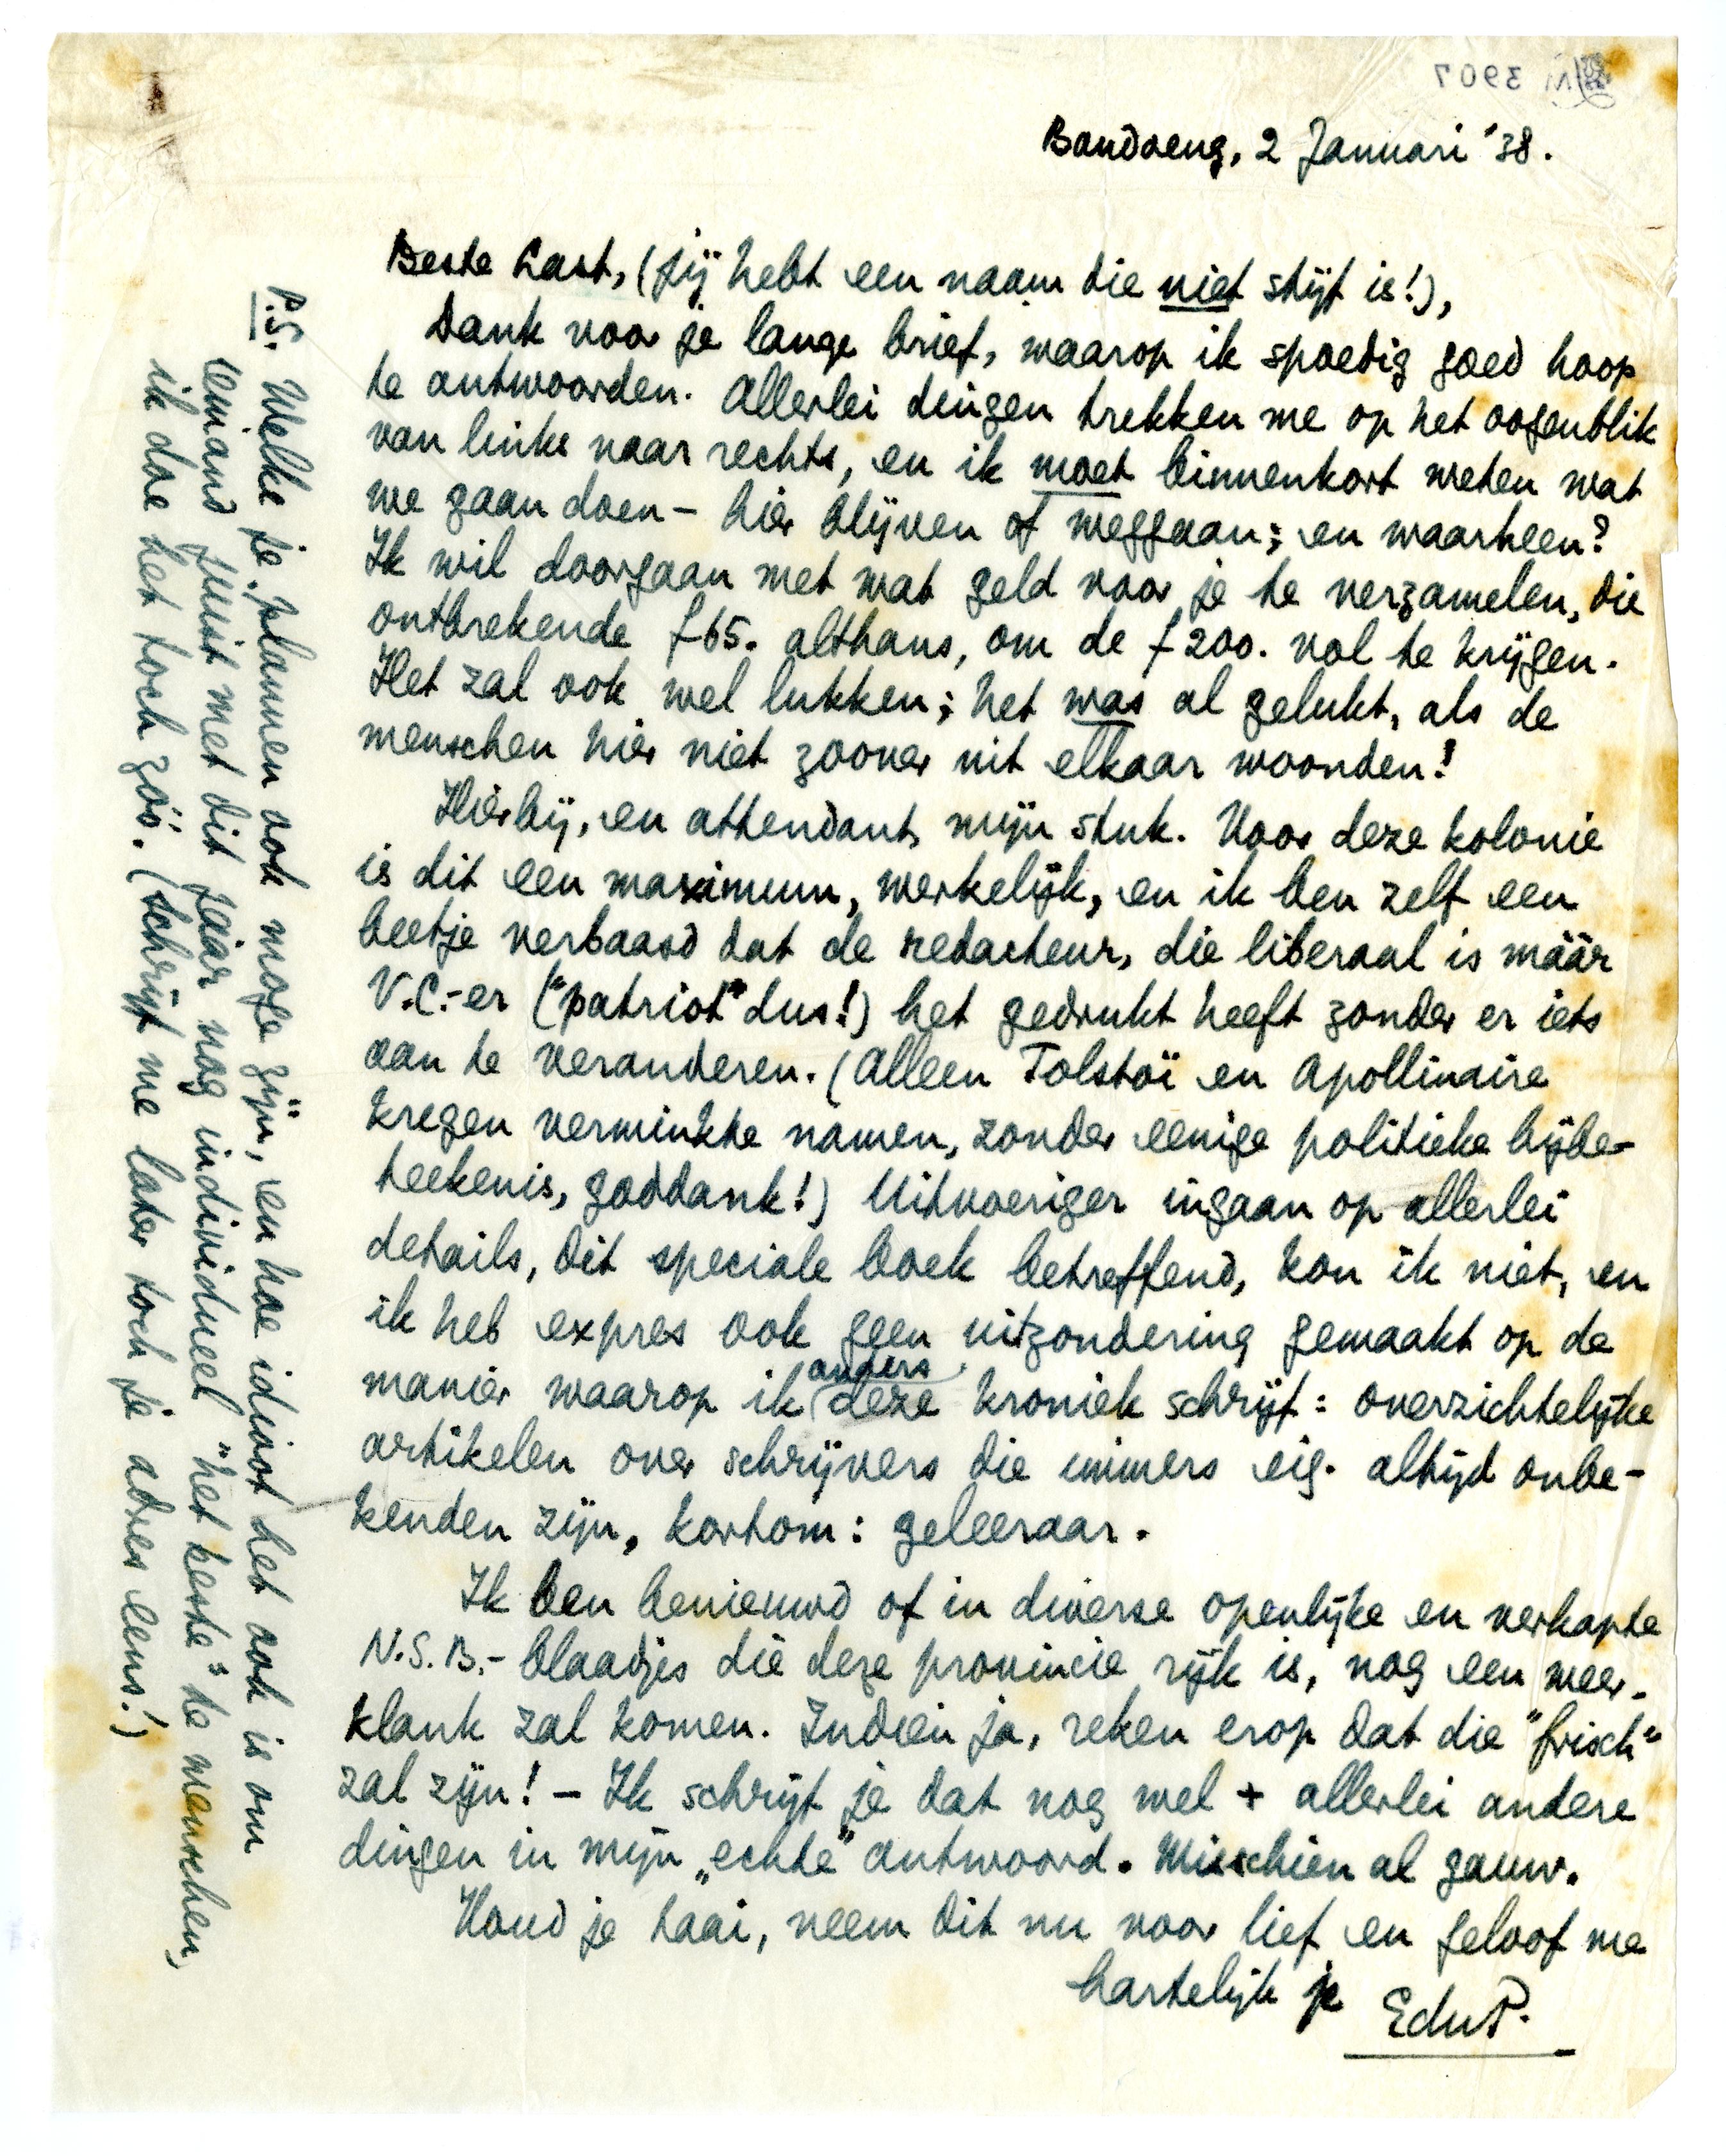 Bandoeng, 2 Januari '38.
Beste Last, (jij hebt een naam die niet stijf is!),
Dank voor je lange brief, waarop ik spoedig goed hoop
te antwoorden. Allerlei dingen trekken me op het oogenblik
van links naar rechts, en ik moet binnenkort weten wat
we gaan doen – hier blijven of weggaan; en waarheen?
Ik wil doorgaan met wat geld voor je te verzamelen, die
ontbrekende f 65. althans, om de f 200. vol te krijgen.
Het zal ook wel lukken; het was al gelukt, als de
menschen hier niet zoover uit elkaar woonden!
Hierbij, en attendant, mijn stuk. Voor deze kolonie
is dit een maximum, werkelijk, en ik ben zelf een
beetje verbaasd dat de redacteur, die liberaal is máár
V.C.-er ("patriot" dus!) het gedrukt heeft zonder er iets
aan te veranderen. (Alleen Tolstoï en Apollinaire
kregen verminkte namen, zonder eenige politieke bijbe-
teekenis, goddank!) Uitvoeriger ingaan op allerlei
details, dit speciale boek betreffend, kon ik niet, en
ik heb expres ook geen uitzondering gemaakt op de
manier waarop ik anders deze kroniek schrijf: overzichtelijke
artikelen over schrijvers die immers eig. altijd onbe-
kenden zijn, kortom: geleeraar.
Ik ben benieuwd of in diverse openlijke en verkapte
N.S.B.-blaadjes die deze provincie rijk is, nog een weer-
klank zal komen. Indien ja, reken erop dat die "frisch"
zal zijn! – Ik schrijf je dat nog wel + allerlei andere
dingen in mijn „echte" antwoord. Misschien al gauw.
Houd je taai, neem dit nu voor lief en geloof me
hartelijk je
EduP.
P.S. Welke je plannen ook moge zijn, en hoe idioot het ook is om
iemand juist met dit jaar nog individueel "het beste" te wenschen,
ik doe het toch zóó. (Schrijf me later toch je adres eens!)
3907